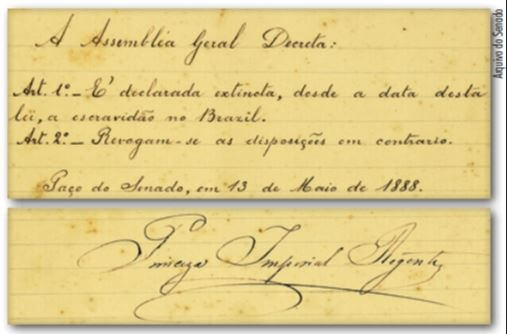 A Assemblea Geral Decreta:
Art. 1º_ E' declarada extincta, desde a data desta
lei, a escravidão no Brazil.
Art. 2º_ Revogam-se as disposições em contrario.
Paço do Senado, em 13 de Maio de 1888.
Princeza Imperial Regente
Arquivo do Senado